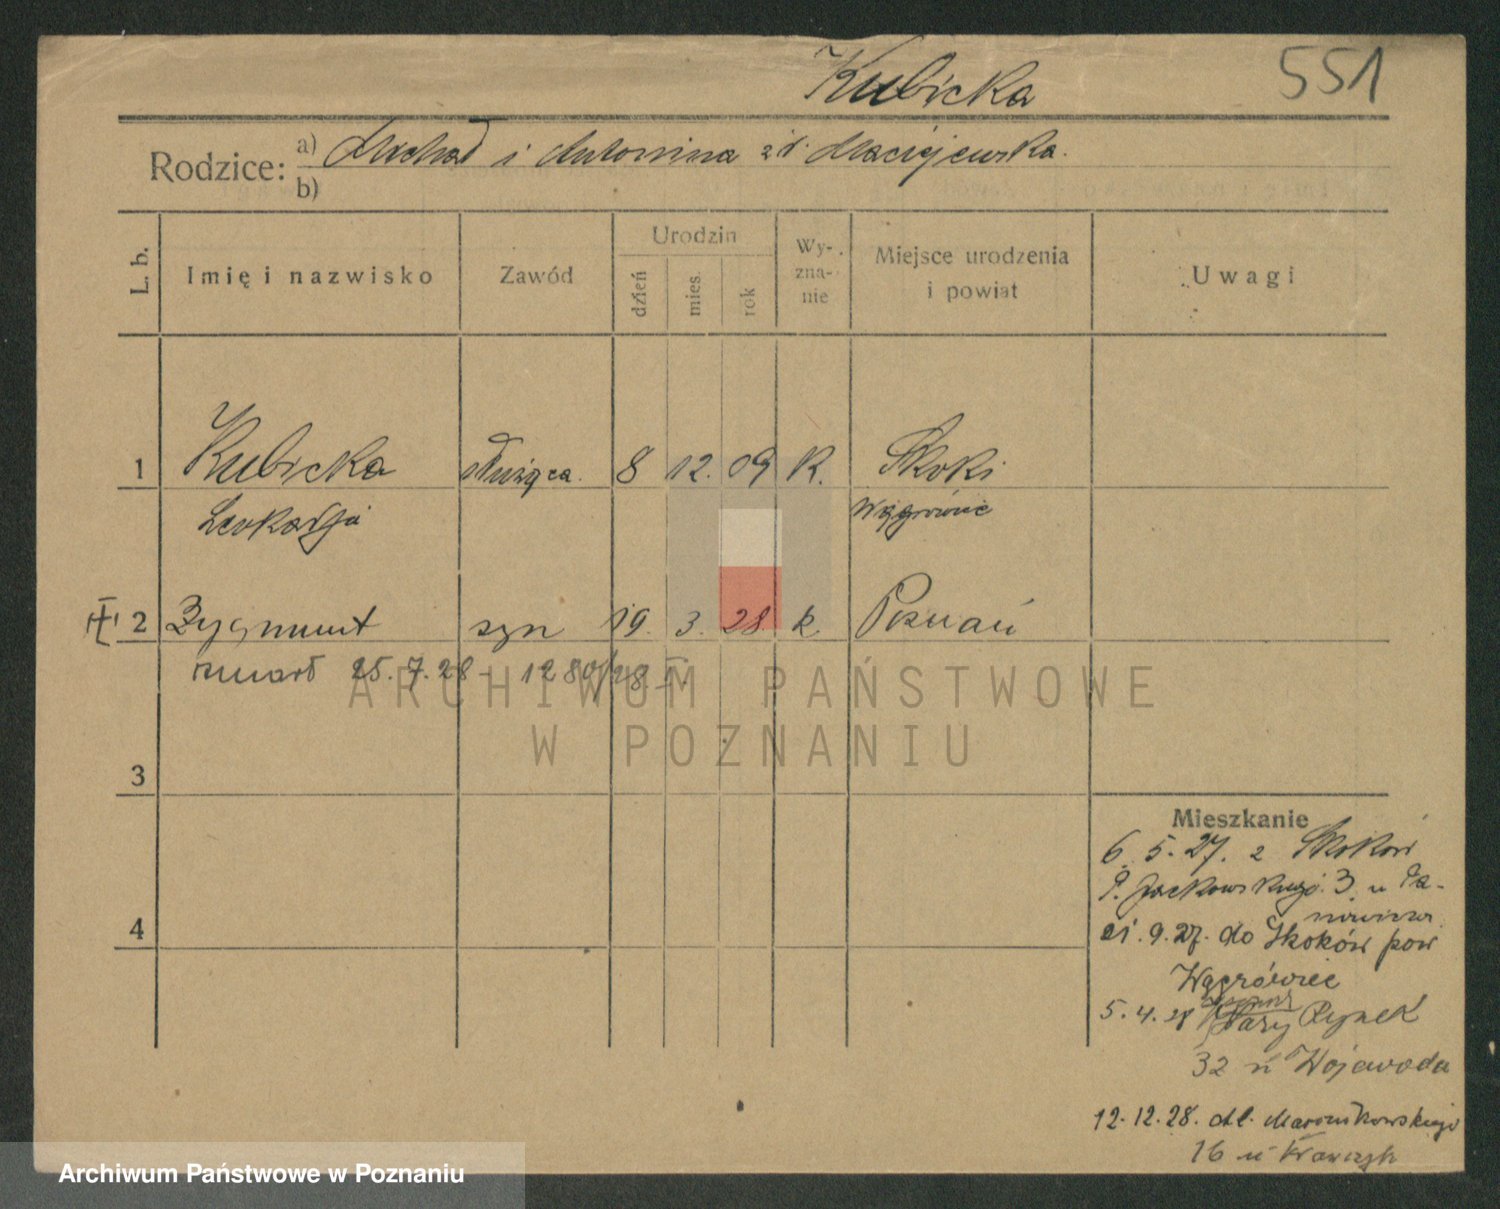 Kubicka 551
Rodzice: a) Michał i Antonina zd. Maciejewska.
b)
L. b. Imię i nazwisko Zawód Urodzin dzień mies. rok Wy-zna-nie Miejsce urodzenia i powiat Uwagi
1 Kubicka służąca. 8 12. 09 K. Skoki
Leokadja Wągrówiec
2 Zygmunt syn 19. 3. 28. k. Poznań
zmarł 25.7.28 - 1280/28
3
Mieszkanie
6. 5. 27. z Skoków
P. Jackowskiego. 3 u
4
21. 9. 27. do Skoków pow
Wągrówiec
5. 4. 28 Stary Rynek
32 u Wojewoda
12. 12. 28. Al. Marcinkowskiego
16 u Krawczyk
ARCHIWUM PAŃSTWOWE
W POZNANIU
Archiwum Państwowe w Poznaniu